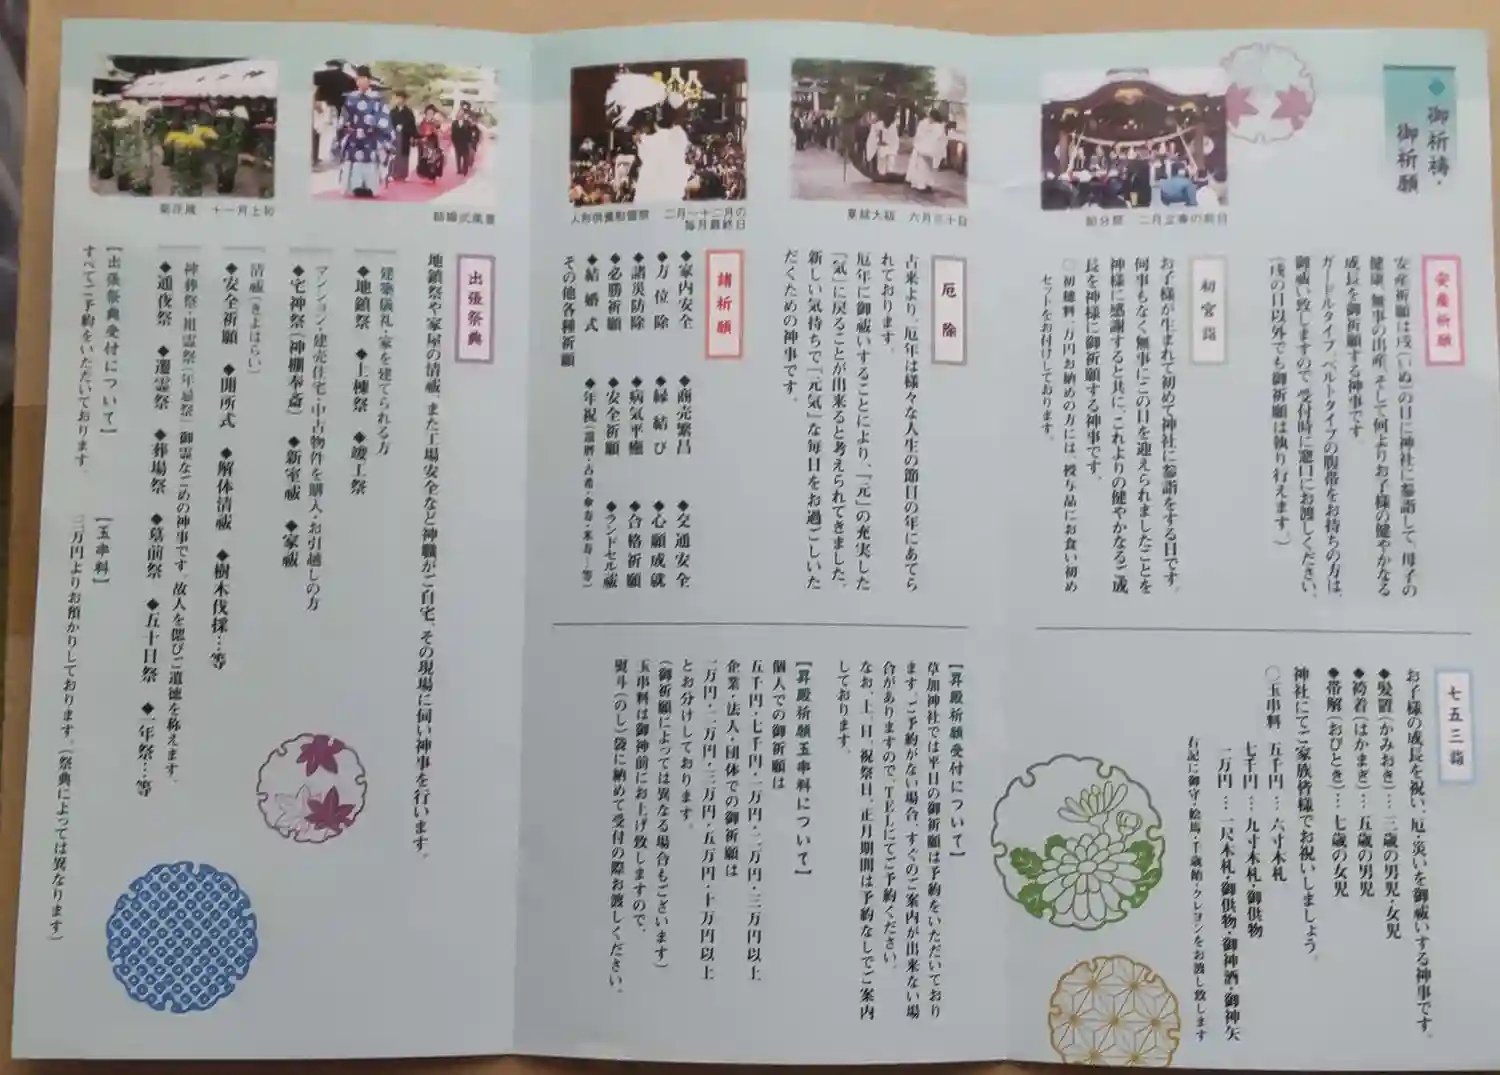 ◆御祈禱・
御祈願
節分祭 二月立春の前日
夏越大祓 六月三十日
人形供養慰霊祭 二月〜十二月の
毎月最終日
結婚式風景
菊花展 十一月上旬
安産祈願
安産祈願は戌(いぬ)の日に神社に参詣して、母子の
健康、無事の出産、そして何よりお子様の健やかなる
成長を御祈願する神事です。
ガードルタイプ、ベルトタイプの腹帯をお持ちの方は、
御祓い致しますので、受付時に窓口にお渡しください。
(戌の日以外でも御祈願は執り行えます。)
初宮詣
お子様が生まれて初めて神社に参詣をする日です。
何事もなく無事にこの日を迎えられましたことを
神様に感謝すると共に、これよりの健やかなるご成
長を神様に御祈願する神事です。
○初穂料一万円お納めの方には、授与品にお食い初め
セットをお付けしております。
厄除
古来より、厄年は様々な人生の節目の年にあてら
れております。
厄年に御祓いすることにより、「元」の充実した
「気」に戻ることが出来ると考えられてきました。
新しい気持ちで「元気」な毎日をお過ごしいた
だくための神事です。
諸祈願
◆家内安全 ◆商売繁昌 ◆交通安全
◆方位除 ◆縁結び ◆心願成就
◆諸災防除 ◆病気平癒 ◆合格祈願
◆必勝祈願 ◆安全祈願 ◆ランドセル祓
◆結婚式 ◆年祝(還暦・古希・傘寿・米寿…等)
その他各種祈願
出張祭典
地鎮祭や家屋の清祓、また工場安全など神職がご自宅、その現場に伺い神事を行います。
建築儀礼・家を建てられる方
◆地鎮祭 ◆上棟祭 ◆竣工祭
マンション・建売住宅・中古物件を購入・お引越しの方
◆宅神祭(神棚奉斎) ◆新室祓 ◆家祓
清祓(きよはらい)
◆安全祈願 ◆開所式 ◆解体清祓 ◆樹木伐採…等
神葬祭・祖霊祭(年忌祭) 御霊なごめの神事です。故人を偲びご遺徳を称えます。
◆通夜祭 ◆遷霊祭 ◆葬場祭 ◆墓前祭 ◆五十日祭 ◆一年祭…等
【出張祭典受付について】
すべてご予約をいただいております。
【玉串料】
三万円よりお預かりしております。(祭典によっては異なります)
七五三詣
お子様の成長を祝い、厄・災いを御祓いする神事です。
◆髪置(かみおき)…三歳の男児・女児
◆袴着(はかまぎ)…五歳の男児
◆帯解(おびとき)…七歳の女児
神社にてご家族皆様でお祝いしましょう。
○玉串料 五千円…六寸木札
七千円…九寸木札・御供物
一万円…一尺木札・御供物・御神酒・御神矢
右記に御守・絵馬・千歳飴・クレヨンをお渡し致します
【昇殿祈願受付について】
草加神社では平日の御祈願は予約をいただいており
ます。ご予約がない場合、すぐのご案内が出来ない場
合がありますので、TELにてご予約ください。
なお、土、日、祝祭日、正月期間は予約なしでご案内
しております。
【昇殿祈願玉串料について】
個人での御祈願は
五千円・七千円・一万円・二万円・三万円以上
企業・法人・団体での御祈願は
一万円・二万円・三万円・五万円・十万円以上
とお分けしております。
(御祈願によっては異なる場合もございます)
玉串料は御神前にお上げ致しますので、
熨斗(のし)袋に納めて受付の際お渡しください。